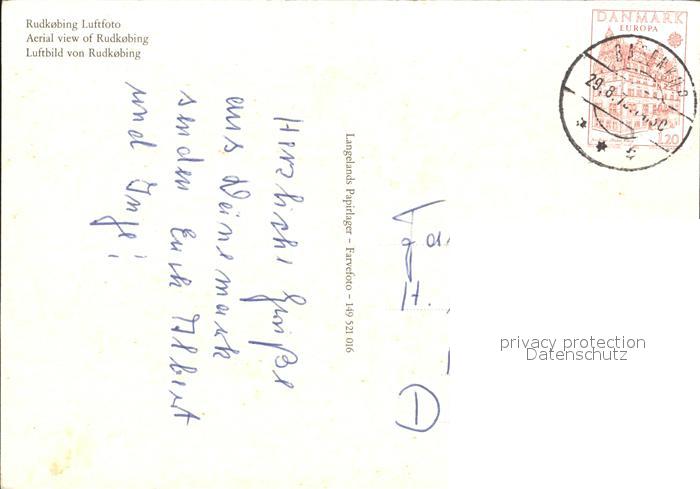 Rudkøbing Luftfoto
Aerial view of Rudkøbing
Luftbild von Rudkøbing
DANMARK
EUROPA
120
Herzliche Grüße
aus Dänemark
senden Euch Albert
und Inge!
Langelands Papirlager – Farvefoto – 149 521 016
privacy protection
Datenschutz